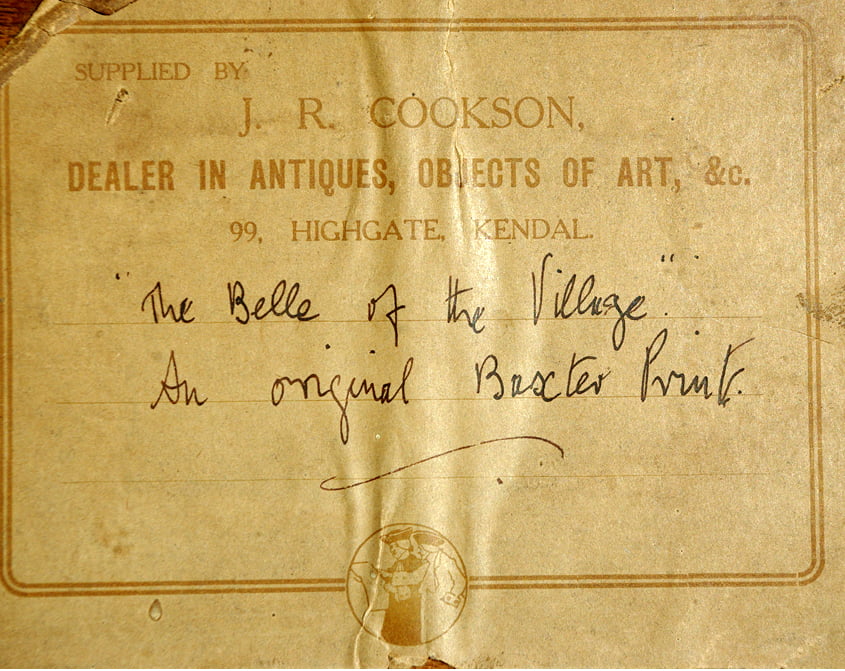 SUPPLIED BY
J. R. COOKSON,
DEALER IN ANTIQUES, OBJECTS OF ART, &c.
99, HIGHGATE, KENDAL.
"The Belle of the Village".
An original Baxter Print.